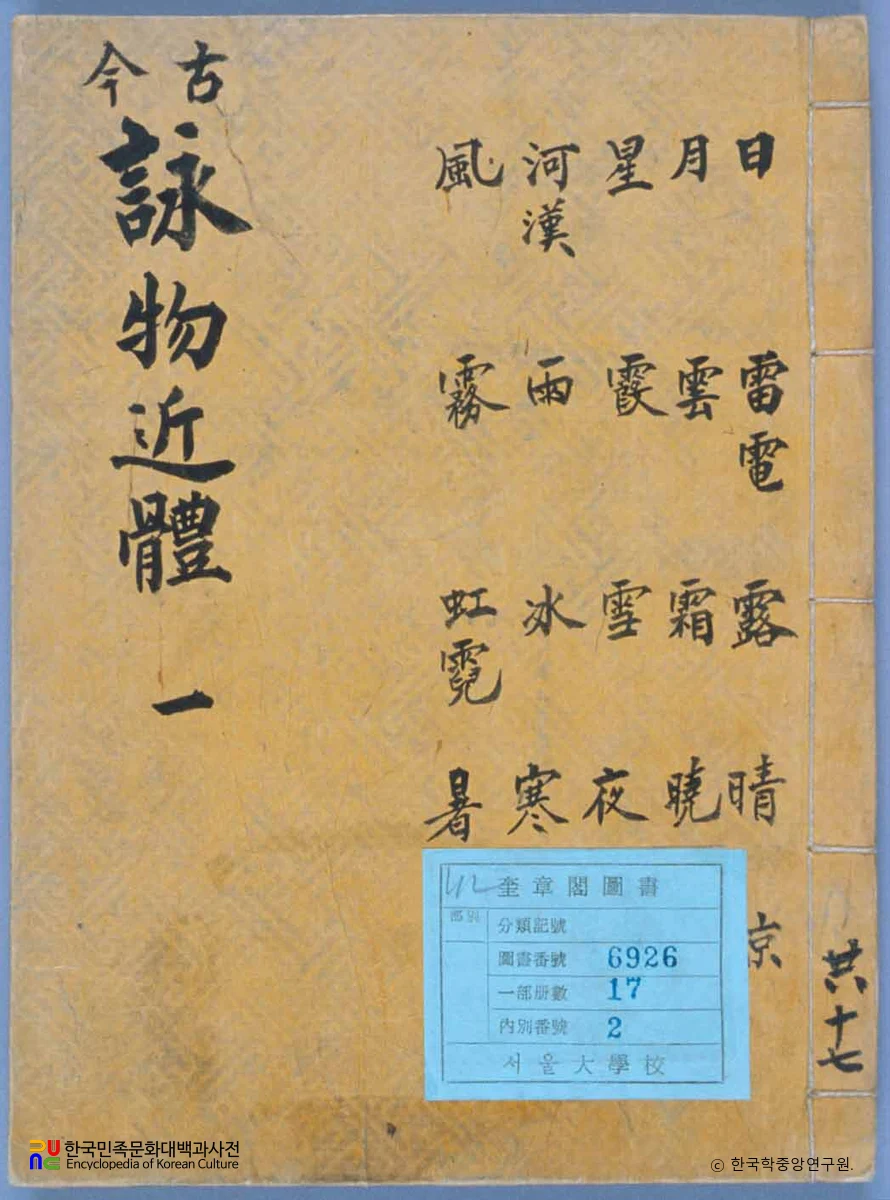 古今
詠物近體 一
日 月 星 河漢 風
雷電 雲 霞 雨 霧
露 霜 雪 冰 虹霓
晴 曉 夜 寒 暑
共十七
奎章閣圖書
部別
分類記號
圖書番號 6926
一部册數 17
內別番號 2
서울大學校
한국민족문화대백과사전
Encyclopedia of Korean Culture
© 한국학중앙연구원.